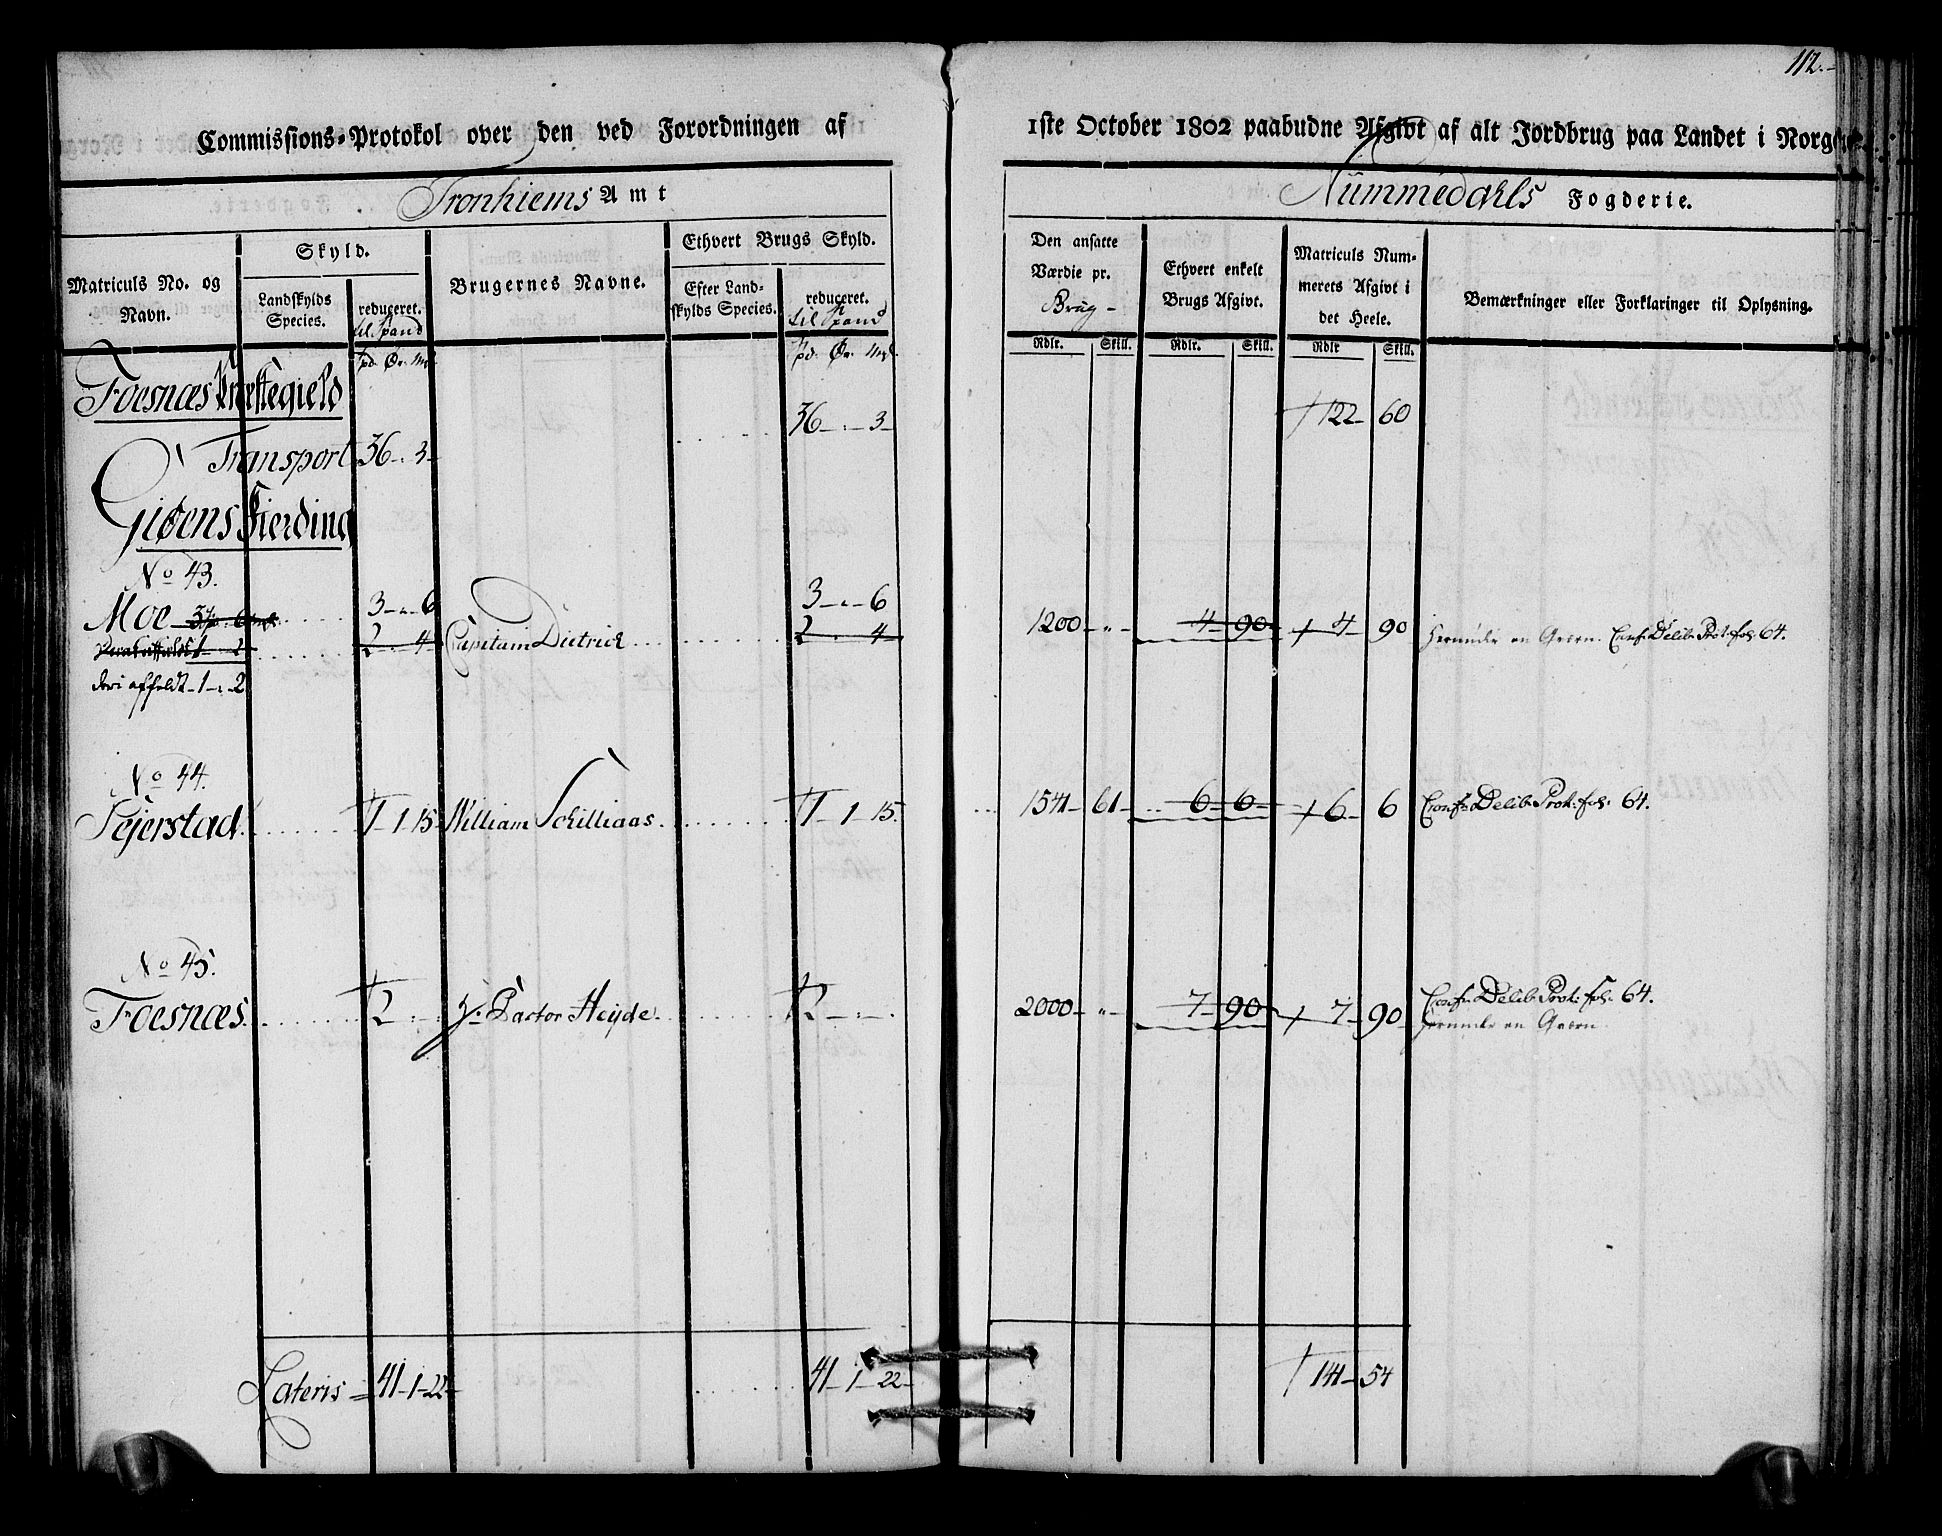 112.-
Commissions-Protokol over den ved Forordningen af
1ste October 1802 paabudne Afgivt af alt Jordbrug paa Landet i Norge
Tronhiems Amt
Nummedahls Fogderie.
Matriculs No. og Navn.
Skyld.
Landskylds Species.
reduceret. til Spand
Brugernes Navne.
Ethvert Brugs Skyld.
Efter Landskylds Species.
reduceret. til Spand
Den ansatte Værdie pr. Brug-
Ethvert enkelt Brugs Afgivt.
Matriculs Nummerets Afgivt i det Heele.
Bemærkninger eller Forklaringer til Oplysning.
Rdlr. Skill. Rdlr. Skill. Rdlr Skill.
Foesnæs Præstegield
36 - " - 3 - † 122 - 60
Transport 36 - " 3 -
Gisøens Fierding
No 43.
3 - " - 6 3 - " - 6
Moe 1200 - " - 4 - 90 † 4 - 90
2 - 4 Capitain Dietrich 2 - 4 Conf: Delib: Prot: fol: 64.
deri affældt - 1 - " - 2
No 44.
Sejerstad. † 1 - 1 - 15 William Schilliaas. † 1 - 1 - 15. 1541 - 61 - 6 - 6 - † 6 - 6 Conf: Delib: Prot: fol: 64.
No 45.
Foesnæs. † 2 - " - Hr. Pastor Heyde. † 2 - " - . 2000 - " - 7 - 90 † 7 - 90 Conf: Delib: Prot: fol: 64.
Lateris = 41 - 1 - 22 - 41 - 1 - 22 - † 141 - 54